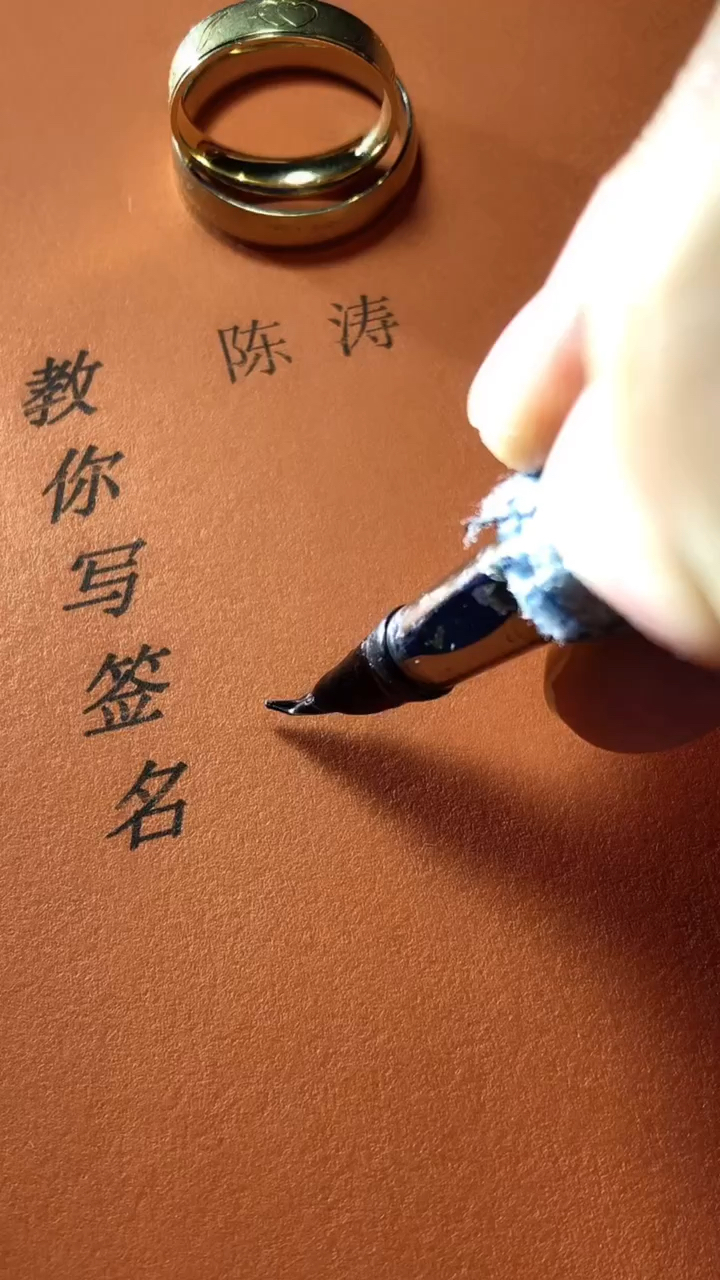 陈涛
教你写签名